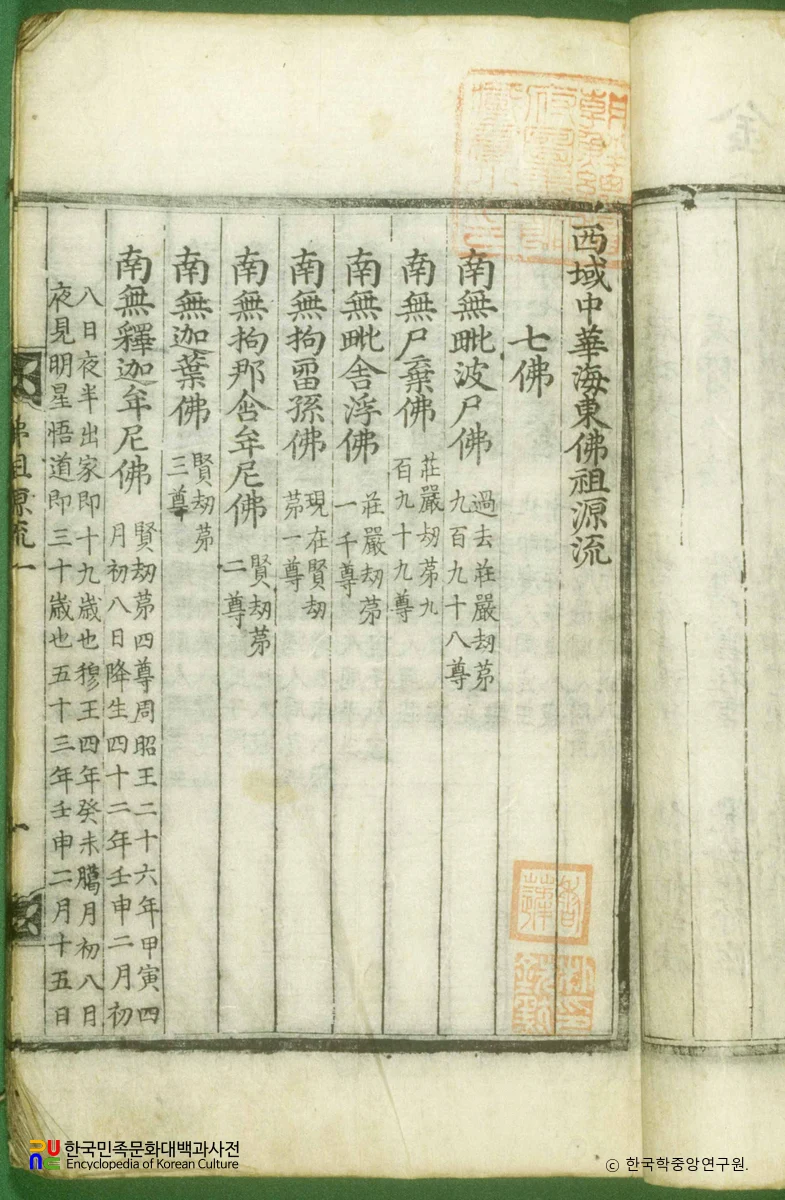 西域中華海東佛祖源流
七佛
南無毗波尸佛 過去莊嚴劫苐
九百九十八尊
南無尸棄佛 莊嚴劫苐九
百九十九尊
南無毗舍浮佛 莊嚴劫苐
一千尊
南無拘留孫佛 現在賢劫
苐一尊
南無拘那含牟尼佛 賢劫苐
二尊
南無迦葉佛 賢劫苐
三尊
南無釋迦牟尼佛 賢劫苐四尊周昭王二十六年甲寅四
月初八日降生四十二年壬申二月初
八日夜半出家即十九歲也穆王四年癸未臈月初八日
夜見明星悟道即三十歲也五十三年壬申二月十五日
佛祖源流一
한국민족문화대백과사전
Encyclopedia of Korean Culture
ⓒ 한국학중앙연구원.